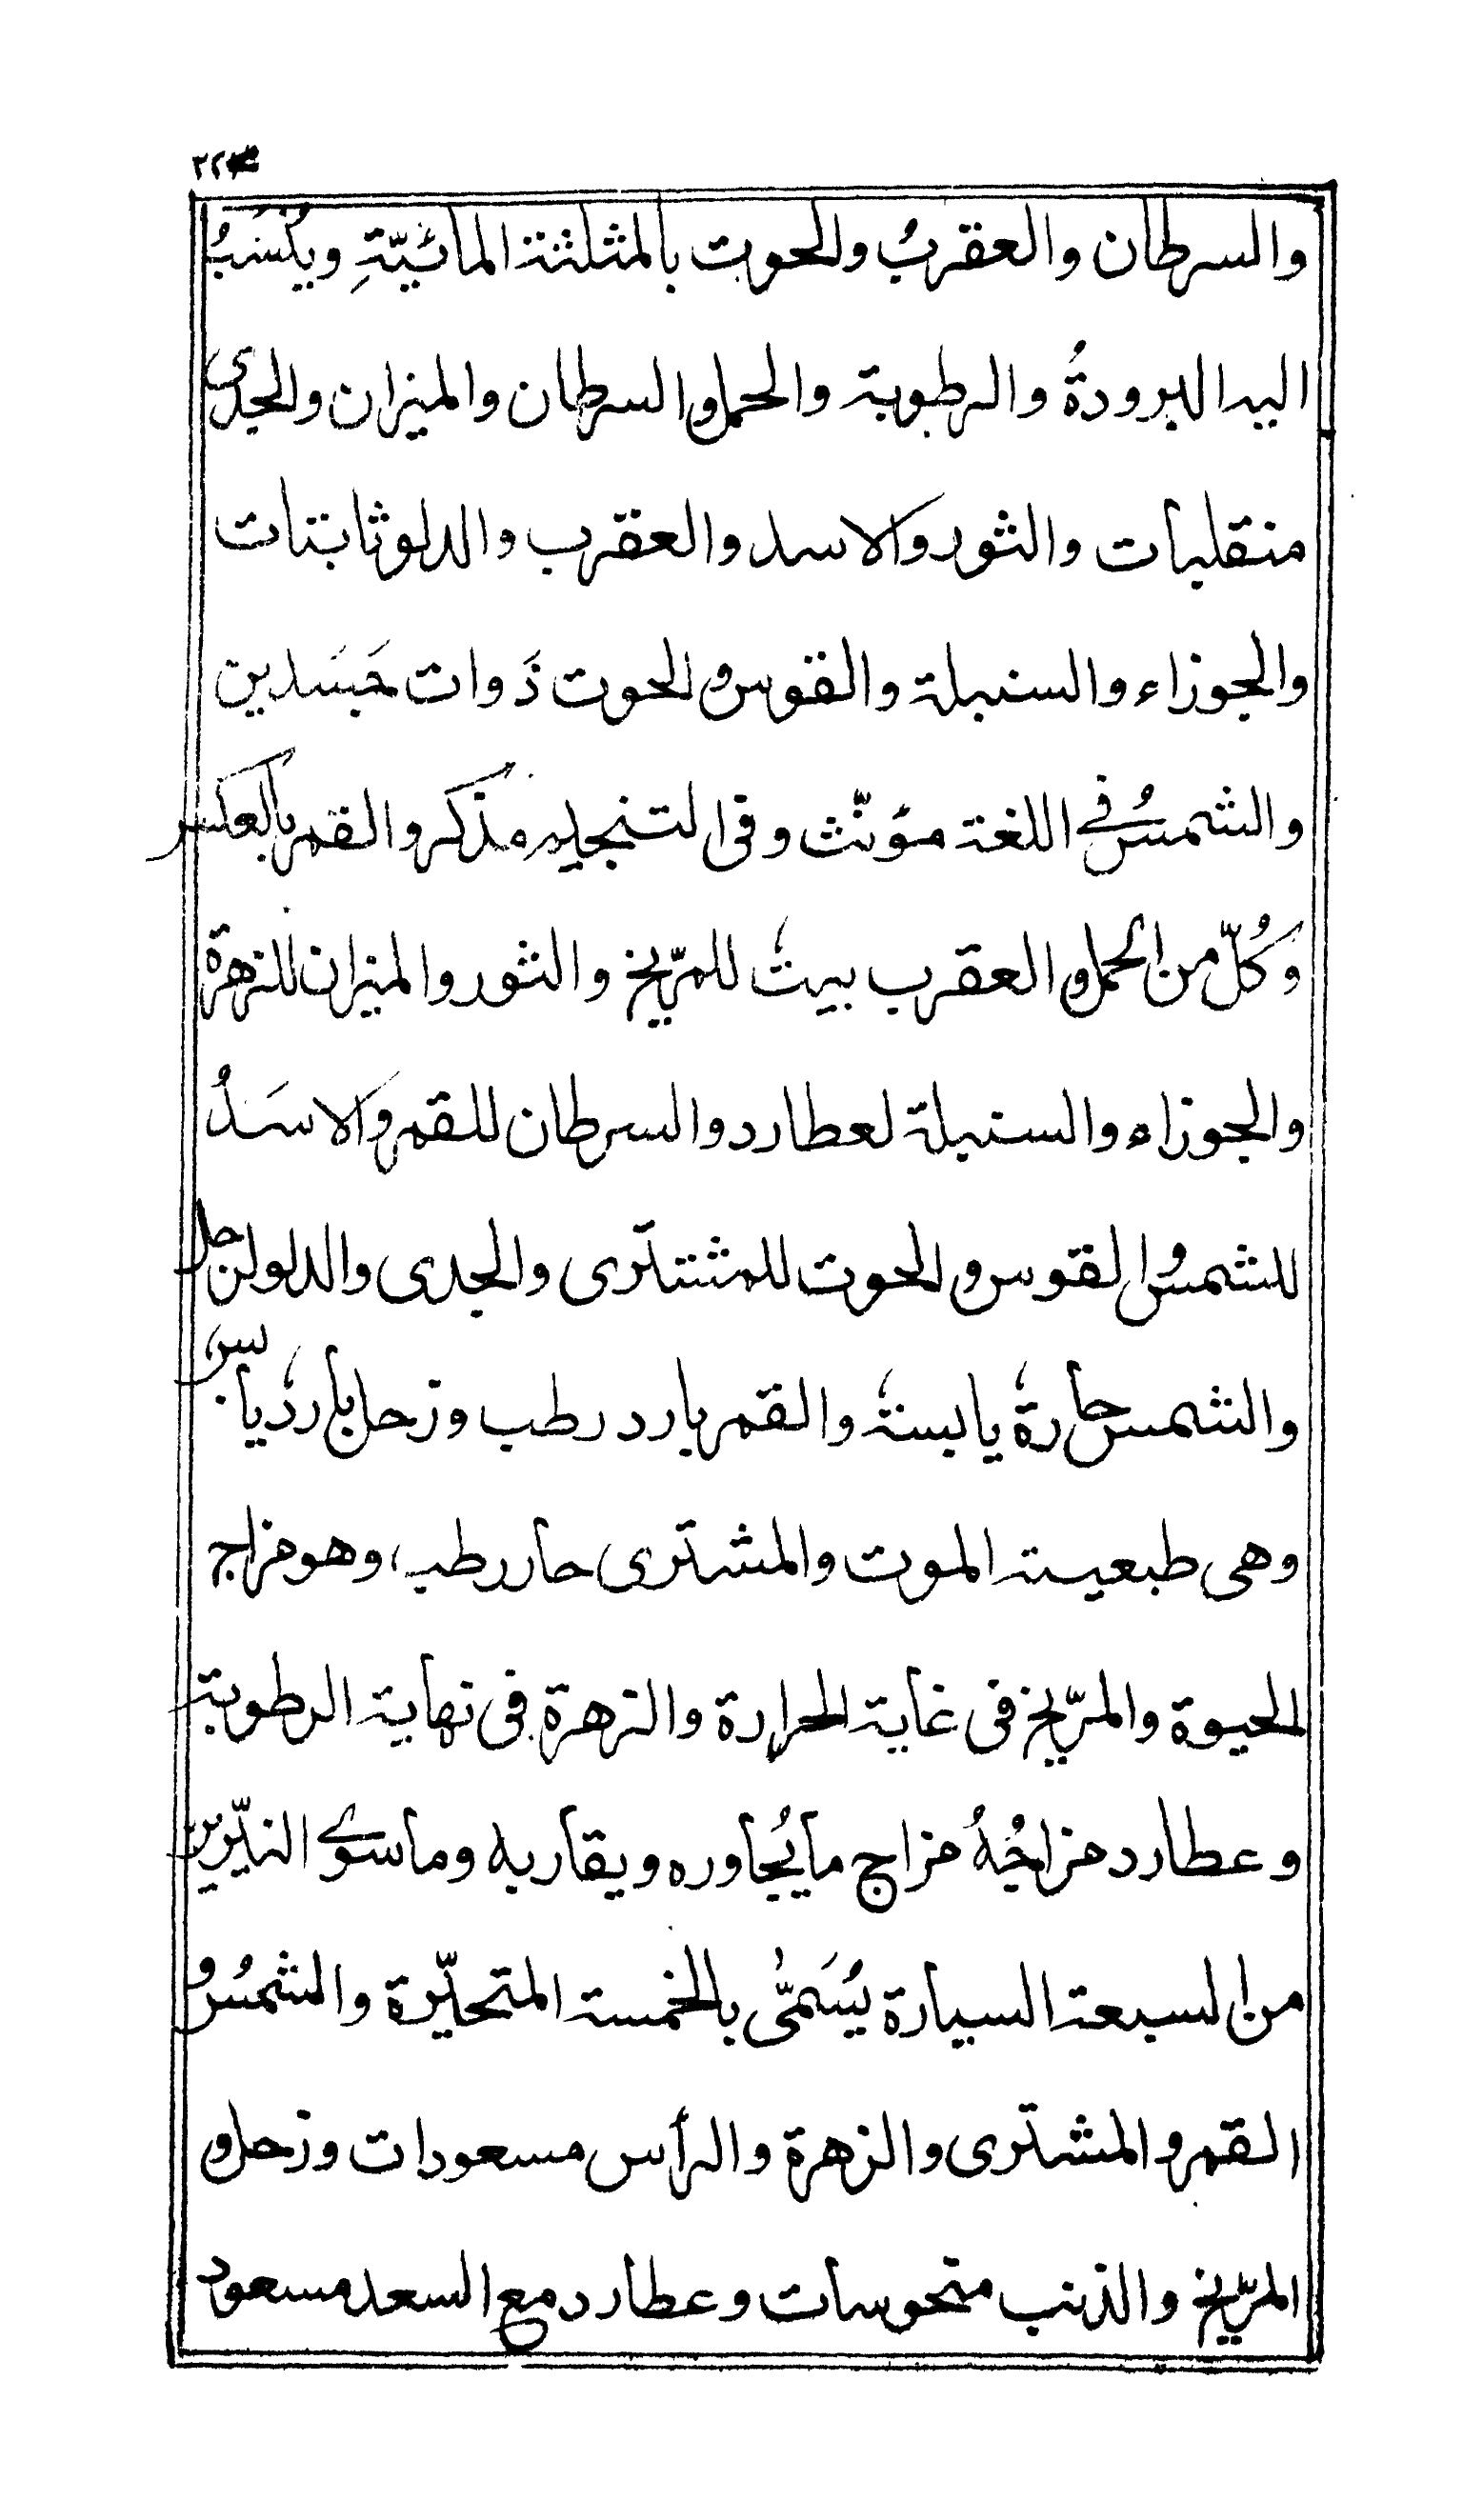 والسرطان والعقربُ والحوت بالمثلثة المائيّةِ ويُنْسَبُ
اليه البرودةُ والرطوبة والحمل والسرطان والميزان والجدى
منقلبات والثور والاسد والعقرب والدلو ثابتات
والجوزاء والسنبلة والقوس والحوت ذَوات جَسَدين
والشمسُ فى اللغة مؤنّث وفى التنجيم مذكر والقمر بالعكس
وَكُلّ من الحمل والعقرب بيتٌ للمرّيخ والثور والميزان للزهرة
والجوزاء والسنبلة لعطارد والسرطان للقمر والاسَدُ
للشمس والقوس والحوت للمشترى والجدى والدلو لزحل
والشمس حارةٌ يابسةٌ والقمر بارد رطب وزحل باردٌ يابس
وهى طبعية الموت والمشترى حار رطب وهو مزاج
الحيوة والمرّيخ فى غاية الحرارة والزهرة فى نهاية الرطوبة
وعطارد مزاجُهُ مزاج ما يُجاوره ويقاربه وما سوى النيّرين
من السبعة السيارة يُسَمّٰى بالخمسة المتحيّرة والشمسُ و
القمر والمشترى والزهرة والرأس مسعودات وزحل و
المرّيخ والذنب منحوسات وعطارد مع السعد مسعود